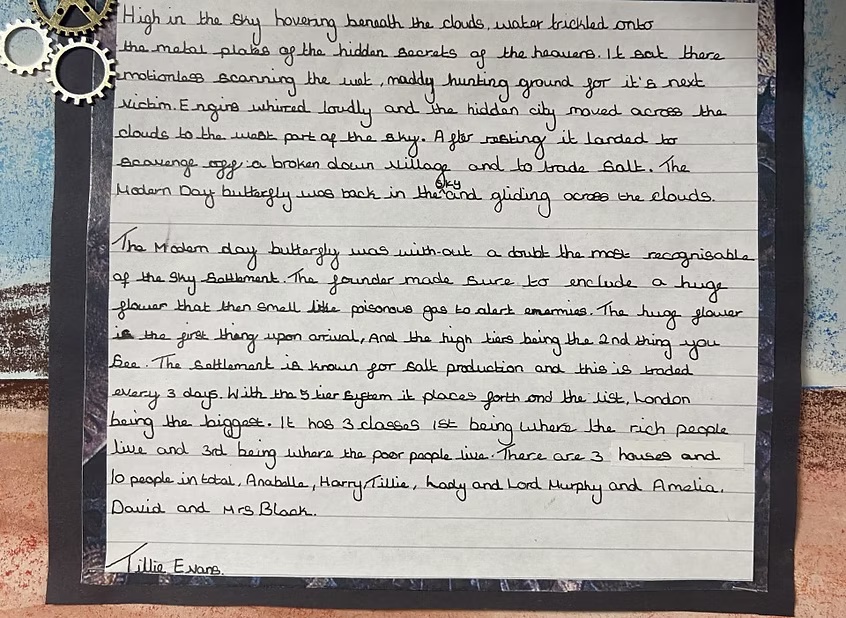 High in the sky hovering beneath the clouds, water trickled onto
the metal plates of the hidden secrets of the heavens. It sat there
motionless scanning the wet, maddy hunting ground for it's next
victim. Engins whirred loudly and the hidden city moved across the
clouds to the west part of the sky. After resting it landed to
scavenge off a broken down village and to trade salt. The
Modern Day butterfly was back in the sky and gliding across the clouds.
The Modern day butterfly was with-out a doubt the most recognisable
of the Sky Settlement. The founder made sure to enclude a huge
flower that then smell like poisonous gas to alert enemies. The huge flower
is the first thing upon arrival, And the high tiers being the 2nd thing you
See. The settlement is known for salt production and this is traded
every 3 days. With the 5 tier System it places forth ond the list, London
being the biggest. It has 3 classes 1st being where the rich people
live and 3rd being where the poor people live. There are 3 houses and
10 people in total, Anabelle, Harry, Tillie, Lady and Lord Murphy and Amelia,
David and Mrs Black.
Tillie Evans.